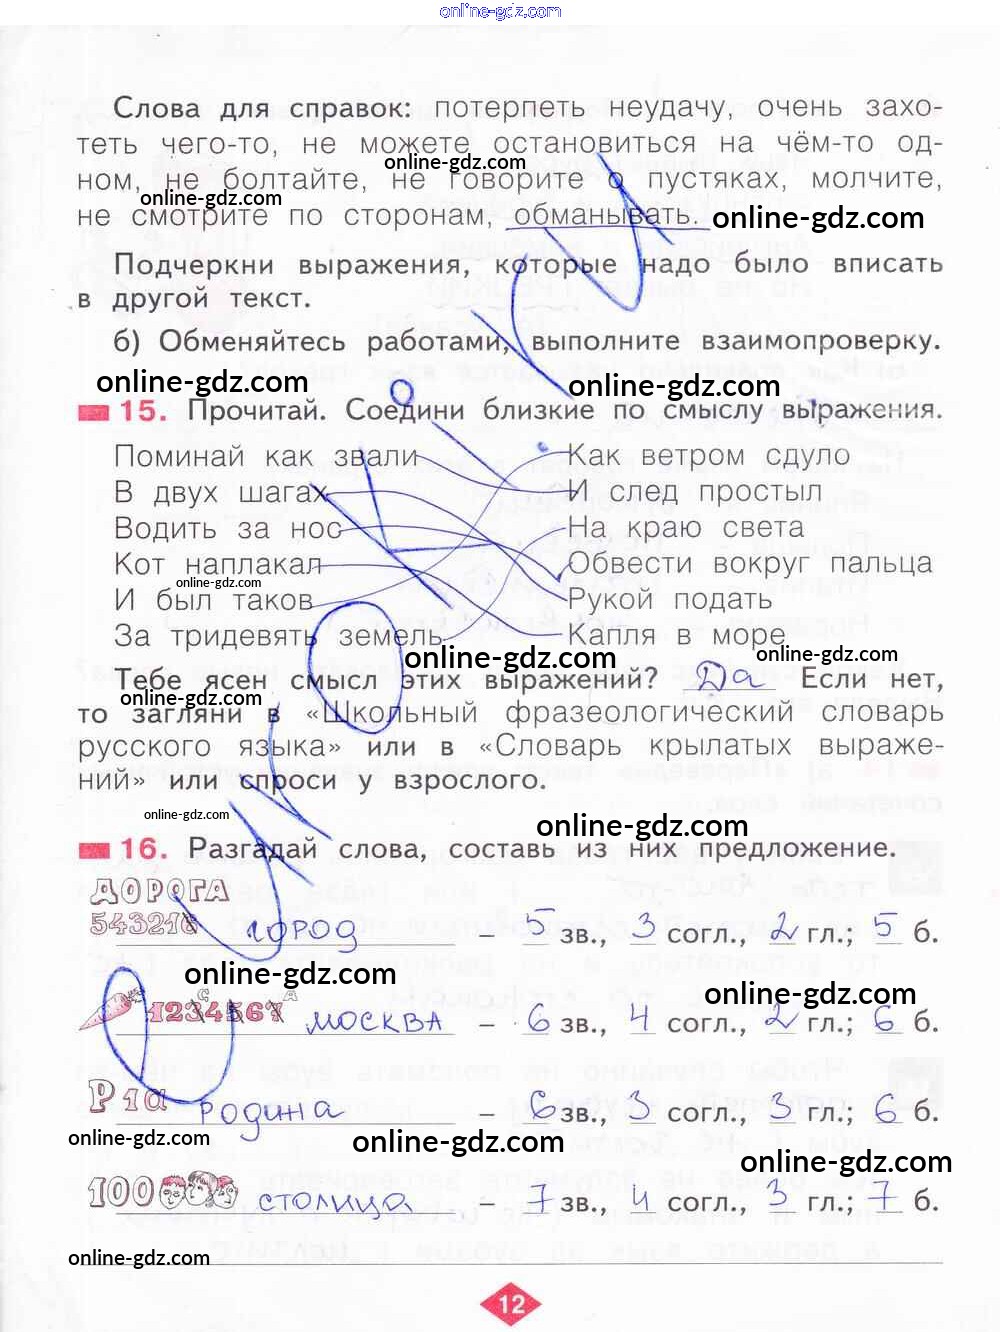 online-gdz.com
Слова для справок: потерпеть неудачу, очень захо-
теть чего-то, не можете остановиться на чём-то од-
online-gdz.com
ном, не болтайте, не говорите о пустяках, молчите,
online-gdz.com
не смотрите по сторонам, обманывать.
online-gdz.com
Подчеркни выражения, которые надо было вписать
в другой текст.
б) Обменяйтесь работами, выполните взаимопроверку.
online-gdz.com
online-gdz.com
15. Прочитай. Соедини близкие по смыслу выражения.
Поминай как звали Как ветром сдуло
В двух шагах И след простыл
Водить за нос На краю света
Кот наплакал Обвести вокруг пальца
online-gdz.com
И был таков Рукой подать
За тридевять земель Капля в море
online-gdz.com
online-gdz.com
Тебе ясен смысл этих выражений? Да Если нет,
online-gdz.com
то загляни в «Школьный фразеологический словарь
русского языка» или в «Словарь крылатых выраже-
ний» или спроси у взрослого.
online-gdz.com
online-gdz.com
16. Разгадай слова, составь из них предложение.
ДОРОГА
543216 город – 5 зв., 3 согл., 2 гл.; 5 б.
online-gdz.com
online-gdz.com
С А
1234567 МОСКВА – 6 зв., 4 согл., 2 гл.; 6 б.
Р1а Родина – 6 зв., 3 согл., 3 гл.; 6 б.
online-gdz.com
online-gdz.com
online-gdz.com
100 столица – 7 зв., 4 согл., 3 гл.; 7 б.
online-gdz.com
12